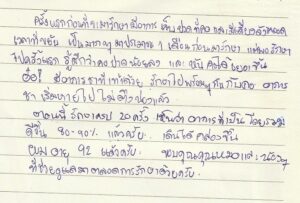 ครั้งแรกก่อนที่จะมารักษามีอาการ เจ็บปวดที่คอ และมีเสียวตลอด
เวลาที่ขยับ เป็นมาก ๆ มาประมาณ 1 เดือนก่อนมารักษา แต่พอรักษา
ไปครั้งแรก รู้สึกว่าคอ ปวดน้อยลง และ ขยับคอได้เยอะขึ้น
มีอาการชาที่เท้าด้วย รักษาไปพร้อมๆ กันกับคอ อาการ
ชา เริ่มหายไป ไม่ แล้ว
ตอนนี้ รักษาครบ 20 ครั้ง เห็นว่า อาการที่เป็น โดยรวม
ดีขึ้น 80-90% แล้วครับ. เดินได้ คล่องขึ้น
ผมอายุ 92 แล้วครับ. ขอบคุณคุณหมอและน้องๆ
ที่ช่วยดูแลมาตลอดการรักษาด้วยครับ.